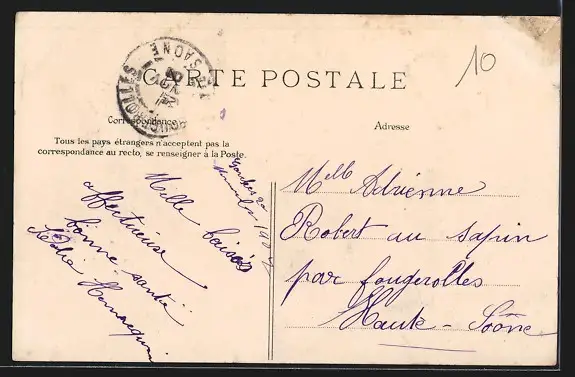 10
CARTE POSTALE
FOUGEROLLES
Hte SAONE
Correspondance
Adresse
Tous les pays étrangers n'acceptent pas la
correspondance au recto, se renseigner à la Poste.
Mille baisers
affectueuse
bonne santé
Melle Adrienne
Robert au sapin
par fougerolles
Haute-Saône